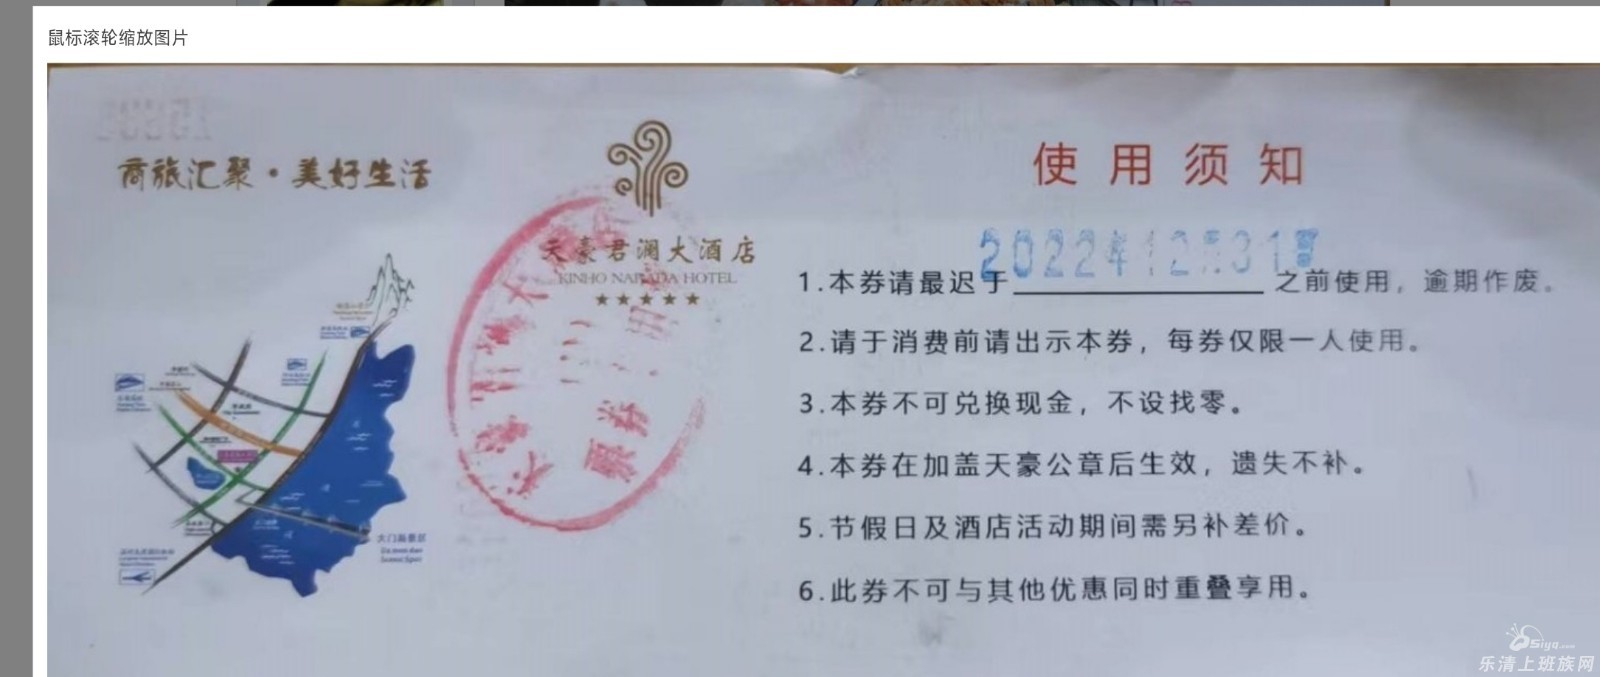 鼠标滚轮缩放图片
商旅汇聚·美好生活
天豪君澜大酒店
KINHO NARADA HOTEL
使用须知
2022年12月31日
1.本券请最迟于 之前使用，逾期作废。
2.请于消费前请出示本券，每券仅限一人使用。
3.本券不可兑换现金，不设找零。
4.本券在加盖天豪公章后生效，遗失不补。
5.节假日及酒店活动期间需另补差价。
6.此券不可与其他优惠同时重叠享用。
票券
大门岛景区
Da men dao
Scenic Spot
乐清上班族网